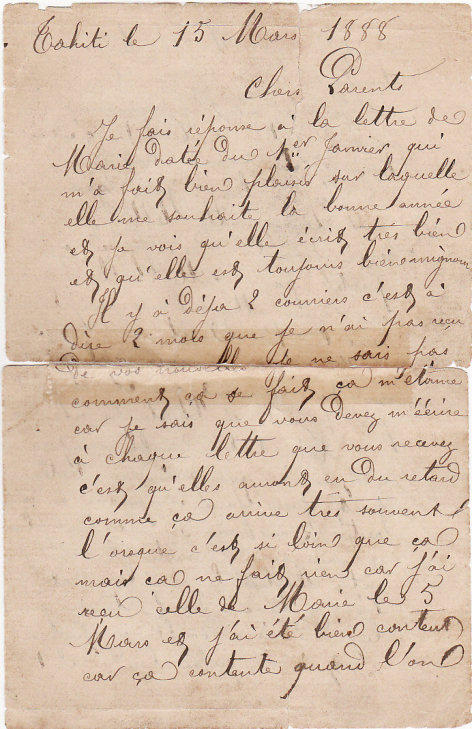 Tahiti le 15 Mars 1888
Chers Parents
Je fais réponse à la lettre de
Marie datée du 1er Janvier qui
m'a fait bien plaisir sur laquelle
elle me souhaite la bonne année
et je vois qu'elle écrit très bien
et qu'elle est toujours bien mignonne
Il y à déja 2 courriers c'est à
dire 2 mois que je n'ai pas reçu
De vos nouvelles Je ne sais pas
comment ça se fait, ça m'étonne
car je sais que vous devez m'écrire
à chaque lettre que vous recevez
c'est qu'elles auront eu du retard
comme ça arrive très souvent
lorsque c'est si loin que ça
mais ça ne fait rien car j'ai
reçu celle de Marie le 5
Mars et j'ai été bien content
car ça contente quand l'on